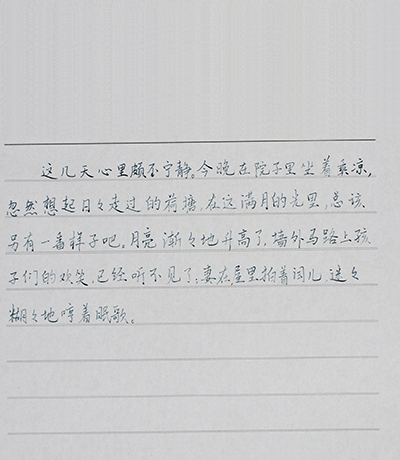 这几天心里颇不宁静。今晚在院子里坐着乘凉，
忽然想起日々走过的荷塘，在这满月的光里，总该
另有一番样子吧。月亮渐々地升高了，墙外马路上孩
子们的欢笑，已经听不见了；妻在屋里拍着闰儿，迷々
糊々地哼着眠歌。